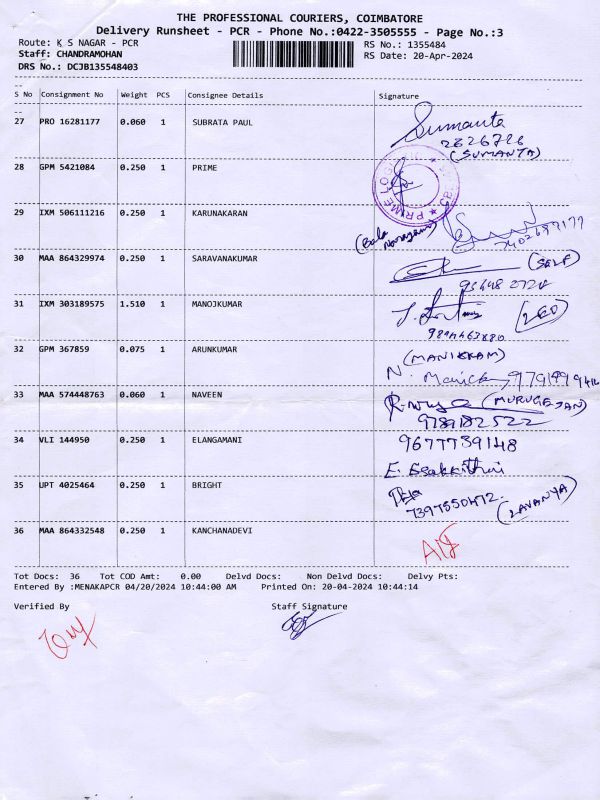 THE PROFESSIONAL COURIERS, COIMBATORE
Delivery Runsheet - PCR - Phone No.:0422-3505555 - Page No.:3
Route: K S NAGAR - PCR RS No.: 1355484
Staff: CHANDRAMOHAN RS Date: 20-Apr-2024
DRS No.: DCJB135548403
S No Consignment No Weight PCS Consignee Details Signature
27 PRO 16281177 0.060 1 SUBRATA PAUL Sumanta
2626726
(SUMANTA)
28 GPM 5421084 0.250 1 PRIME
PRIME LOGI
29 IXM 506111216 0.250 1 KARUNAKARAN
(Bala
30 MAA 864329974 0.250 1 SARAVANAKUMAR (SELF)
31 IXM 303189575 1.510 1 MANOJKUMAR
32 GPM 367859 0.075 1 ARUNKUMAR (MANIKKAM)
N. Manick
33 MAA 574448763 0.060 1 NAVEEN (MURUGESAN)
9789182522
34 VLI 144950 0.250 1 ELANGAMANI 9677739148
E. Esakkithai
35 UPT 4025464 0.250 1 BRIGHT
7397550472 (LAVANYA)
36 MAA 864332548 0.250 1 KANCHANADEVI
Tot Docs: 36 Tot COD Amt: 0.00 Delvd Docs: Non Delvd Docs: Delvy Pts:
Entered By :MENAKAPCR 04/20/2024 10:44:00 AM Printed On: 20-04-2024 10:44:14
Verified By Staff Signature